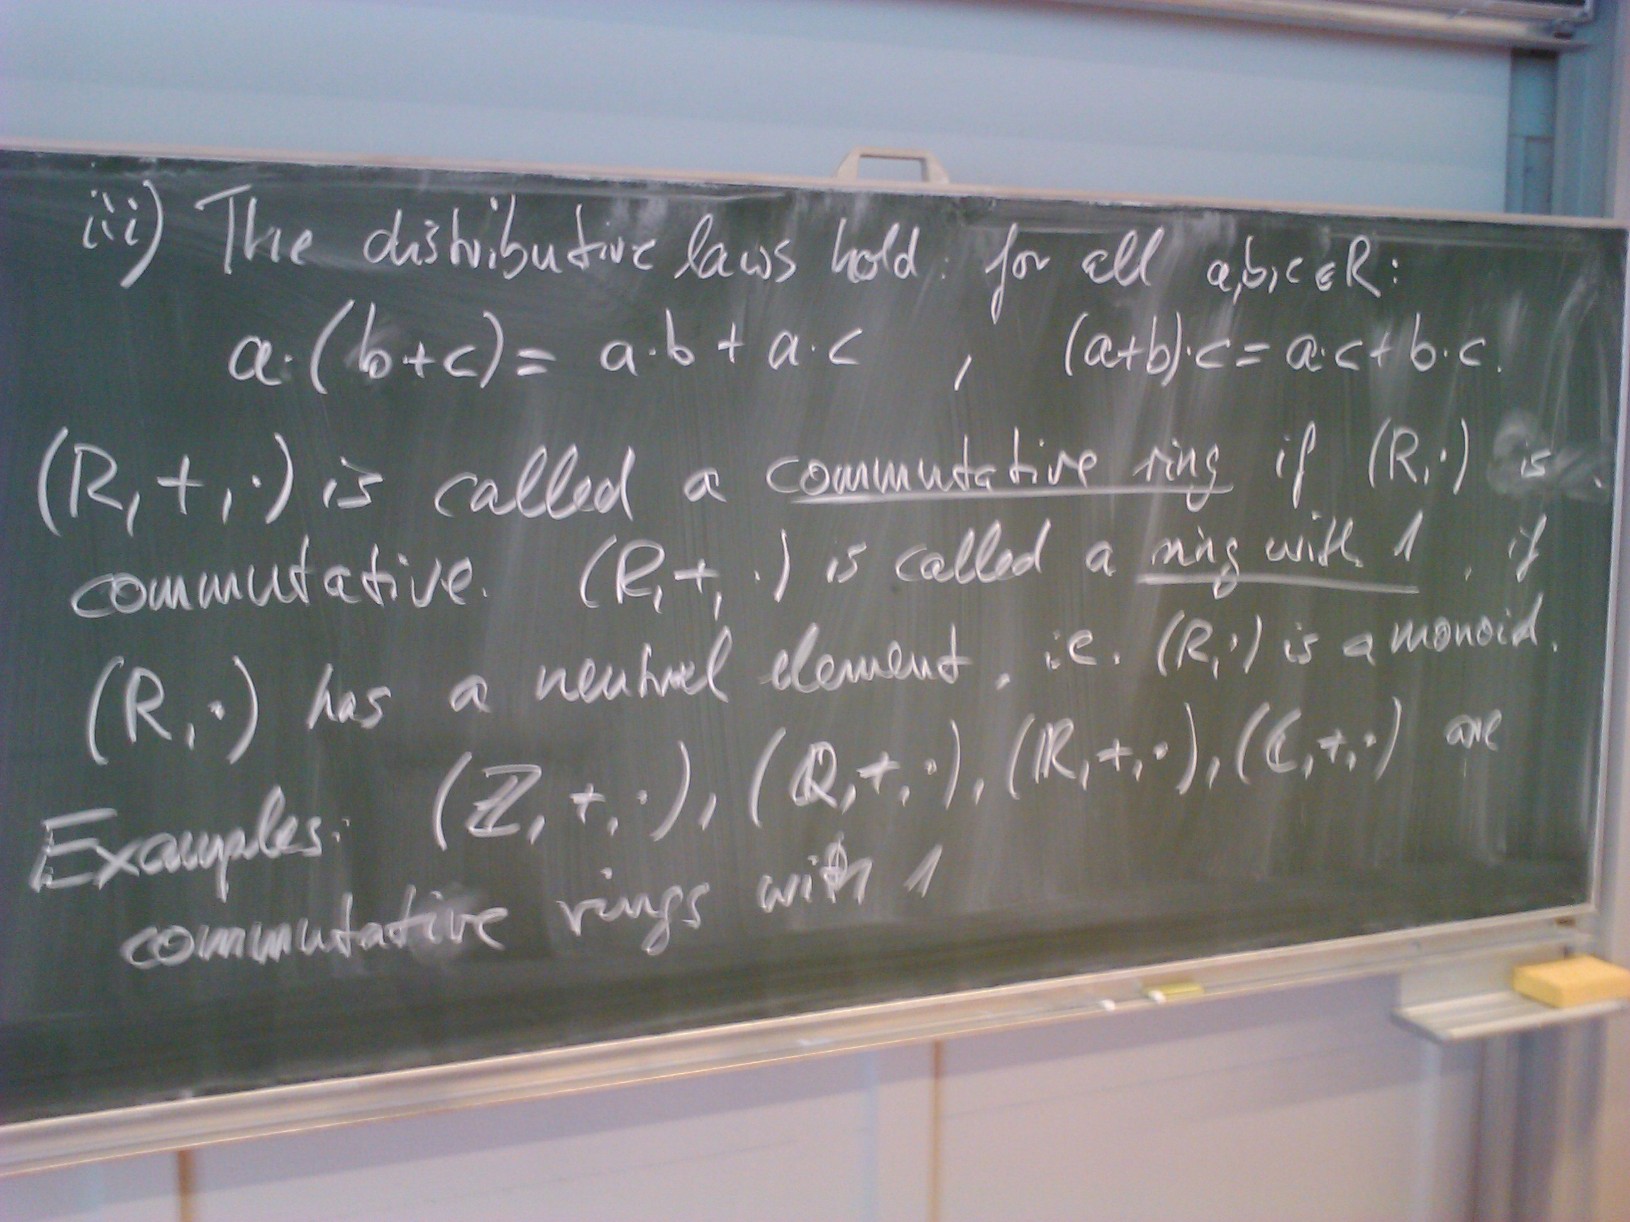 iii) The distributive laws hold: for all a,b,c ∈ R:
a·(b+c) = a·b + a·c , (a+b)·c = a·c + b·c.
(R,+,·) is called a commutative ring if (R,·) is
commutative. (R,+,·) is called a ring with 1, if
(R,·) has a neutral element, i.e. (R,·) is a monoid.
Examples: (ℤ,+,·), (ℚ,+,·), (ℝ,+,·), (ℂ,+,·) are
commutative rings with 1